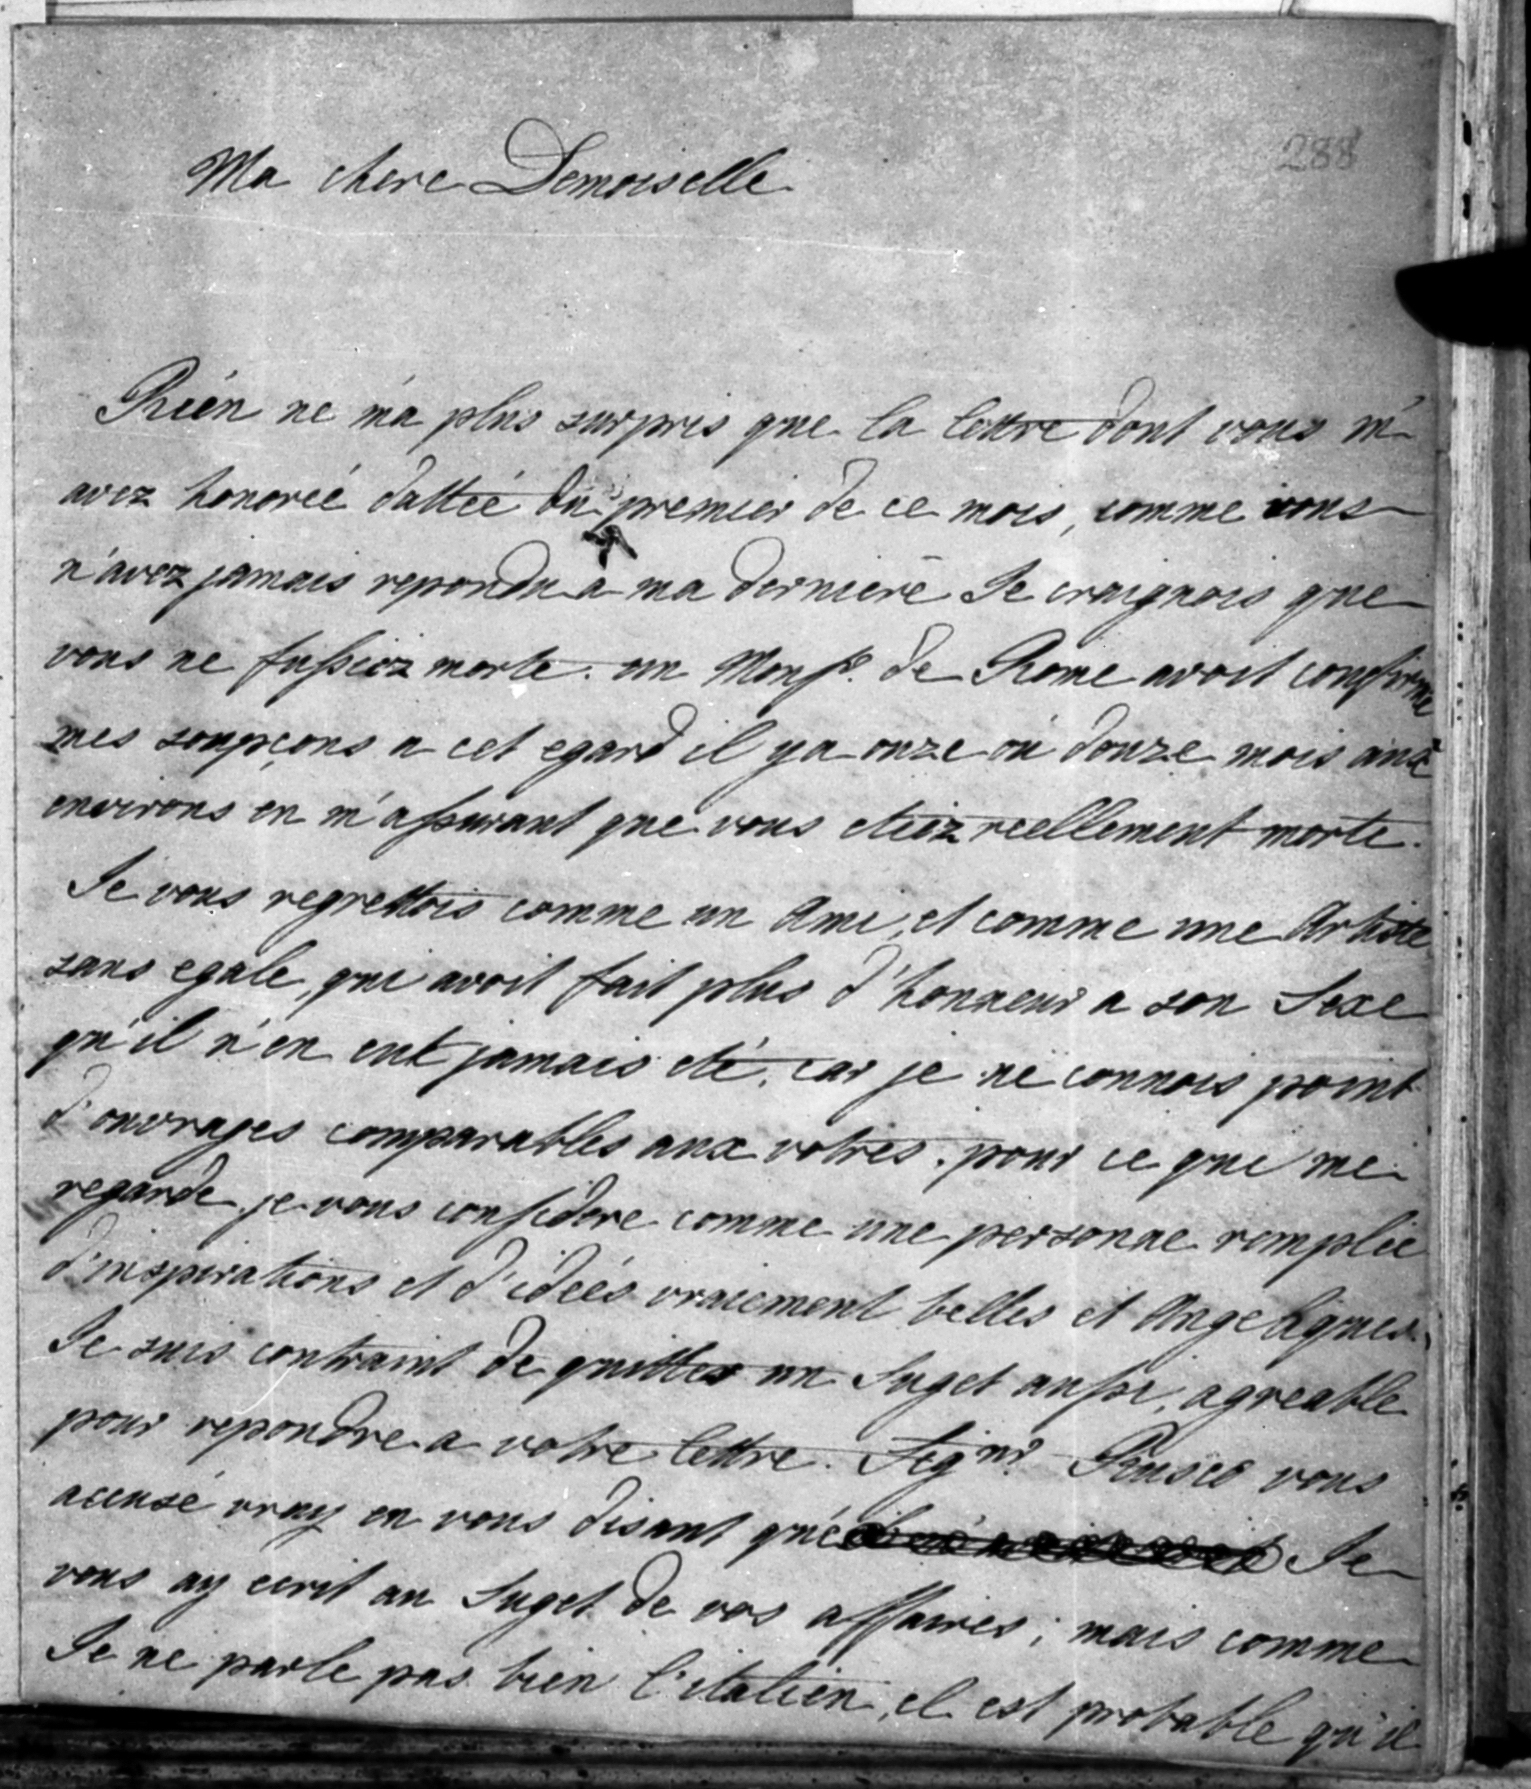 288
Ma chere Demoiselle
Rién ne m'a plus surpris que la lettre dont vous m'
avez honoreé datteé du premier de ce mois, comme vous
n'avez jamais repondu a ma derniere Je craignois que
vous ne fussiez morte. un Monsr. de Rome avoit confirmé
mes soupçons a cet egard il ya onze ou douze mois aux
environs en m'assurant que vous etiez reellement morte.
Je vous regrettois comme un Ami, et comme une Artiste
sans egale, qui avoit fait plus d'honneur a son Sexe
qu'il n'en eut jamais eté. car je ne connois point
d'ouvrages comparables aux votres. pour ce qui me
regarde je vous considere comme une personne remplie
d'inspirations et d'ideés vraiement belles et Angeliques.
Je suis contraint de quitter un Suget aussi, agreable
pour repondre a votre lettre. Signr. vous
accusé vray en vous disant que Je
vous ay ecrit au Suget de vos affaires; mais comme
Je ne parle pas bien l'italien, il est probable qu'il